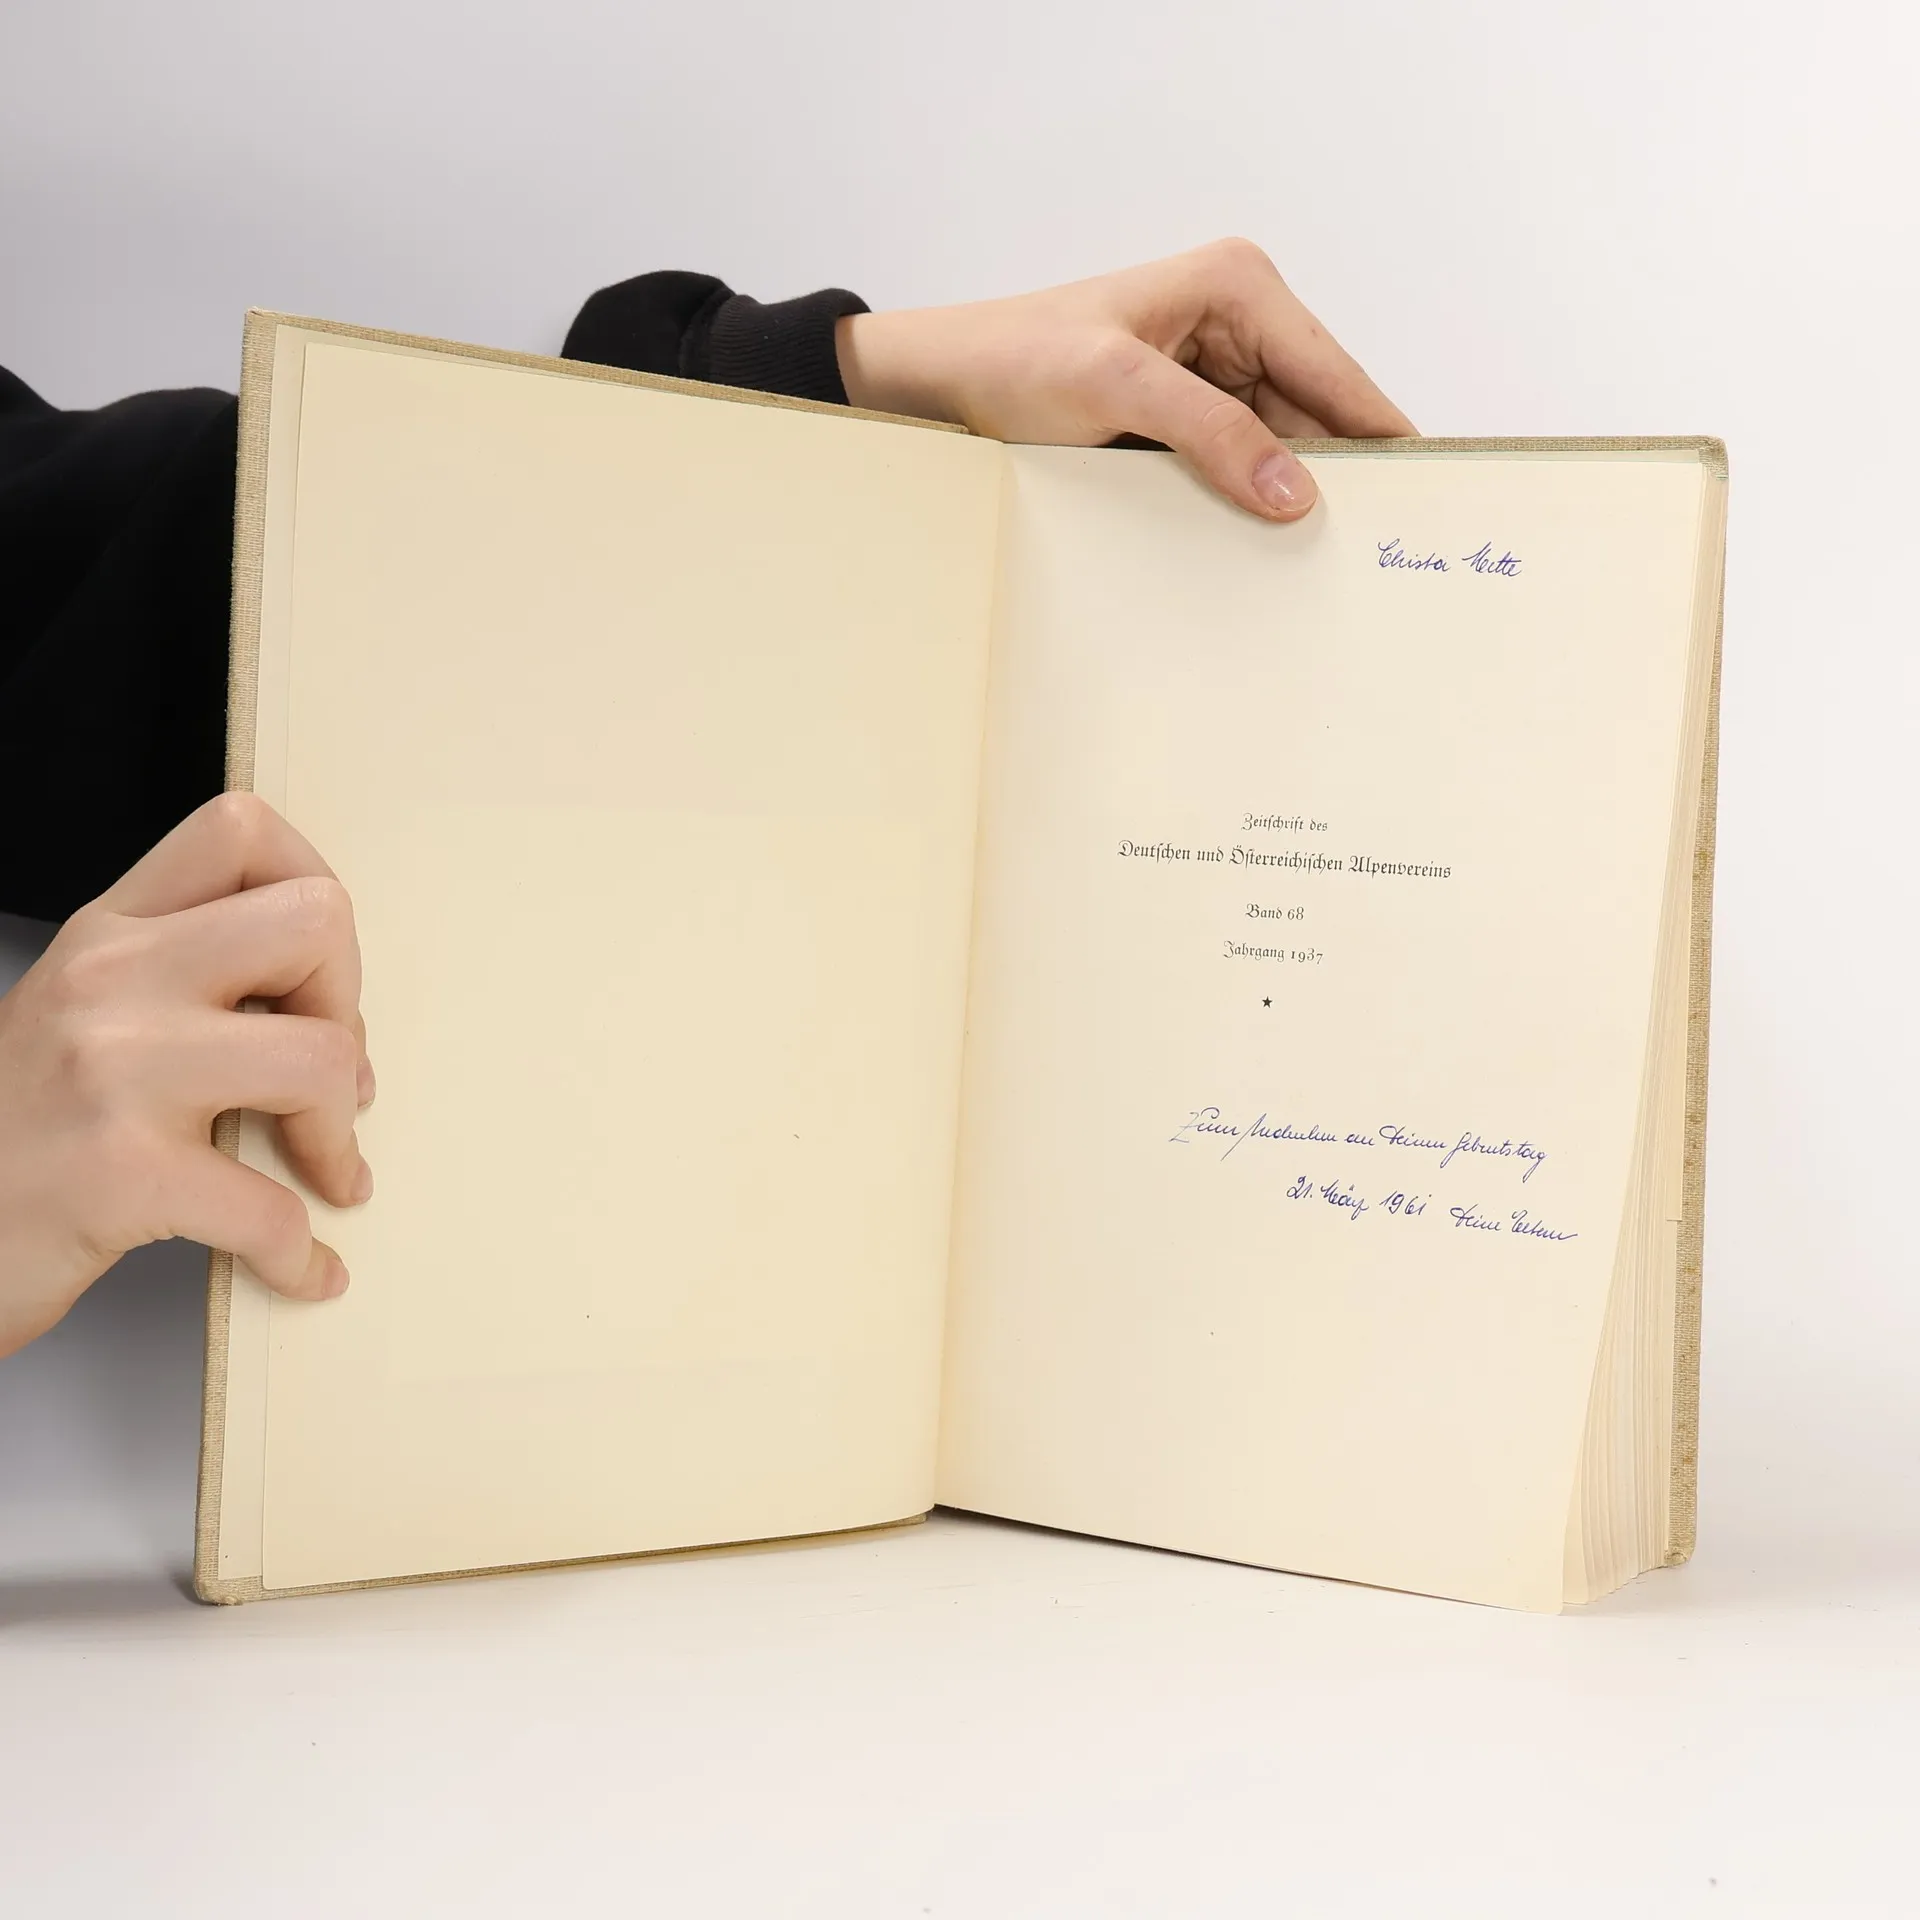 Christa Mette
Zeitschrift des
Deutschen und Österreichischen Alpenvereins
Band 68
Jahrgang 1937
Zum Andenken an Deinen Geburtstag
21. März 1961 Deine Eltern